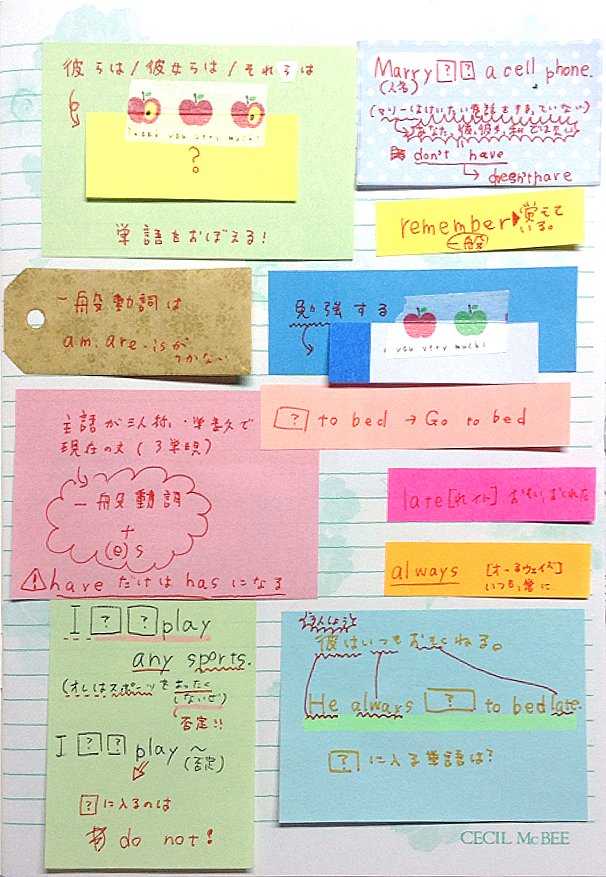 彼らは/彼女らは/それらは
Thank you very much!
?
単語をおぼえる!
Marry ? ? a cell phone.
(人名)
(マリーはけいたい電話をもっていない)
don't have
doesn't have
remember▶覚えて
いる。
一般
一般動詞は
am. are. isが
つかない
勉強する
you very much!
? to bed → Go to bed
主語が三人称・単数で
現在の文(3単現)
一般動詞
+
(e)s
⚠haveだけはhasになる
late[れイト] おそい,おくれた
always [オーるウェイズ]
いつも,常に
I ? ? play
any sports.
(オレはスポーツをまったく
しないぜ)
否定!!
I ? ? play ~
(否定)
?に入るのは
do not!
彼はいつもおそくねる。
He always ? to bed late.
?に入る単語は?
CECIL McBEE